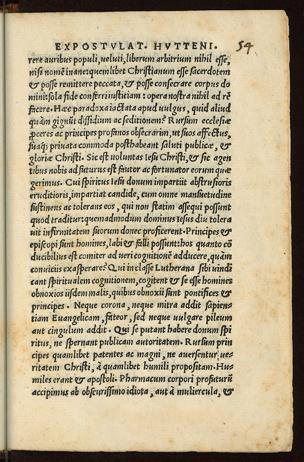 EXPOSTVLAT. HVTTENI.
54
rere auribus populi, ueluti, liberum arbitrium nihil esse,
nisi nomẽ inane: quemlibet Christianum esse sacerdotem
& posse remittere peccata, & posse consecrare corpus do
mini: sola fide conferri iustitiam: opera nostra nihil ad rẽ
facere. Hæc paradoxa iactata apud uulgus, quid aliud
quàm gignũt dissidium ac seditionem? Rursum ecclesiæ
proceres ac principes profanos obsecrarim, ut suos affectus,
suaq; priuata commoda posthabeant saluti publicæ, &
gloriæ Christi. Sic est uoluntas Iesu Christi, & sic agen
tibus nobis adfuturus est fautor ac fortunator eorum quæ
gerimus. Cui spiritus Iesu donum impartijt abstrusioris
eruditionis, impartiat candide, cum omni mansuetudine
sustinens ac tolerans eos, qui non statim assequi possunt
quod traditur: quemadmodum dominus iesus diu tolera
uit infirmitatem suorum donec proficerent. Principes &
episcopi sunt homines, labi & falli possunt: hos quanto cõ
ducibilius est comiter ad ueri cognitionẽ adducere, quàm
conuicijs exasperare? Qui in classe Lutherana sibi uindi
cant spiritualem cognitionem, cogitent & se esse homines
obnoxios ijsdem malis, quibus obnoxij sunt pontifices &
principes. Neque corona, neque mitra addit sapien
tiam Euangelicam, fateor, sed neque uulgare pileum
aut cingulum addit. Qui se putant habere donum spi
ritus, ne spernant publicam autoritatem. Rursum prin
cipes quamlibet potentes ac magni, ne auersentur ue
ritatem Christi, à quamlibet humili propositam. Hu
miles erant & apostoli. Pharmacum corpori profuturũ
accipimus ab obscurissimo idiota, aut à muliercula, &